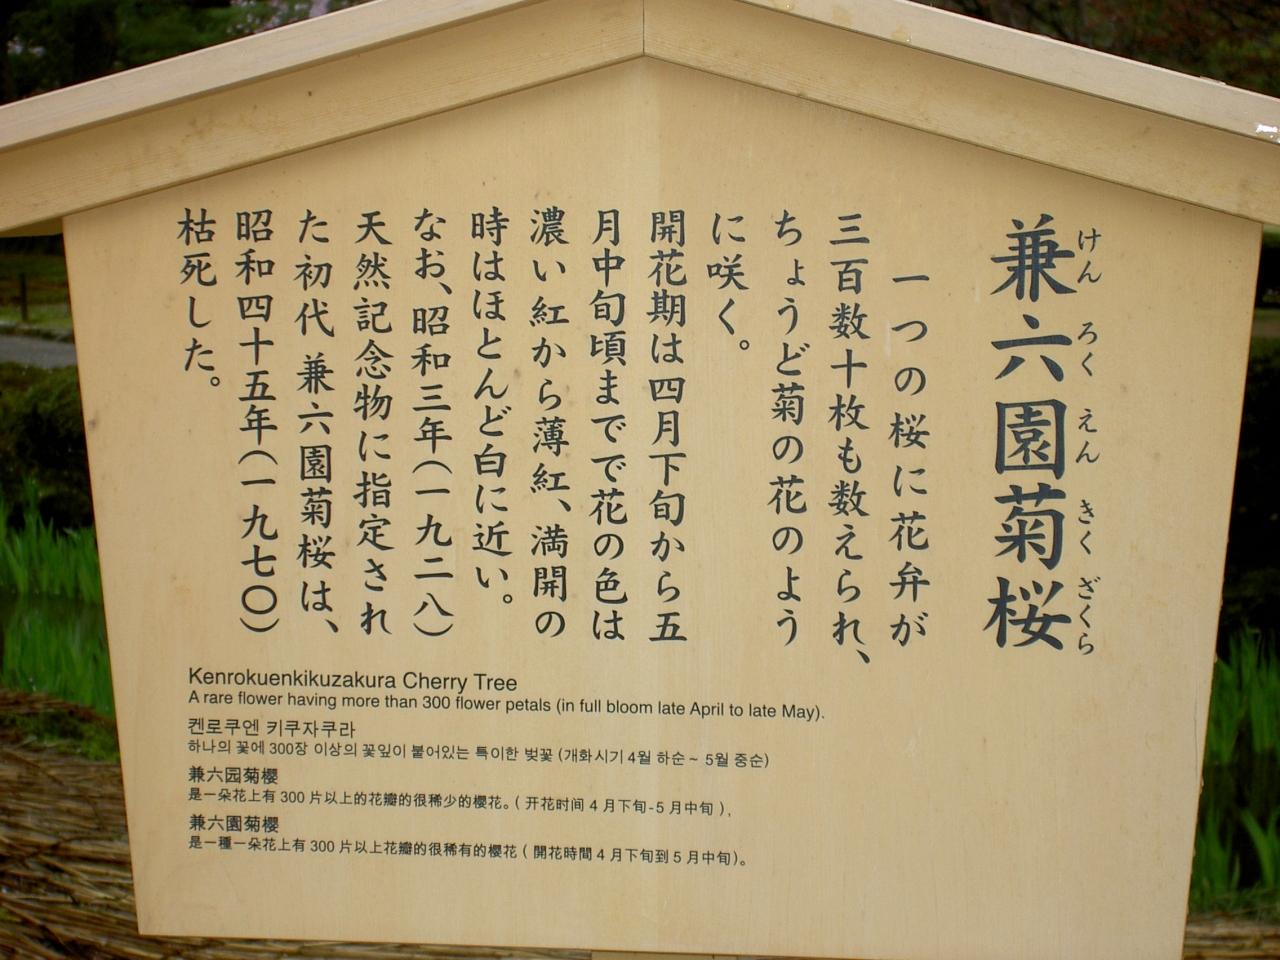 兼六園菊桜
けん ろく えん きく ざくら
一つの桜に花弁が
三百数十枚も数えられ、
ちょうど菊の花のよう
に咲く。
開花期は四月下旬から五
月中旬頃までで花の色は
濃い紅から薄紅、満開の
時はほとんど白に近い。
なお、昭和三年(一九二八)
天然記念物に指定され
た初代 兼六園菊桜は、
昭和四十五年(一九七〇)
枯死した。
Kenrokuenkikuzakura Cherry Tree
A rare flower having more than 300 flower petals (in full bloom late April to late May).
켄로쿠엔 키쿠자쿠라
하나의 꽃에 300장 이상의 꽃잎이 붙어있는 특이한 벚꽃 (개화시기 4월 하순~ 5월 중순)
兼六园菊樱
是一朵花上有 300 片以上的花瓣的很稀少的樱花。( 开花时间 4 月下旬-5 月中旬 ),
兼六園菊櫻
是一種一朵花上有 300 片以上花瓣的很稀有的櫻花 ( 開花時間 4 月下旬到 5 月中旬)。